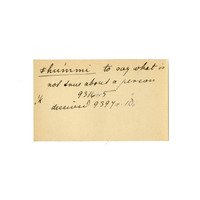 shummi to say what is
not true about a person
9316-5
deceived 9397-